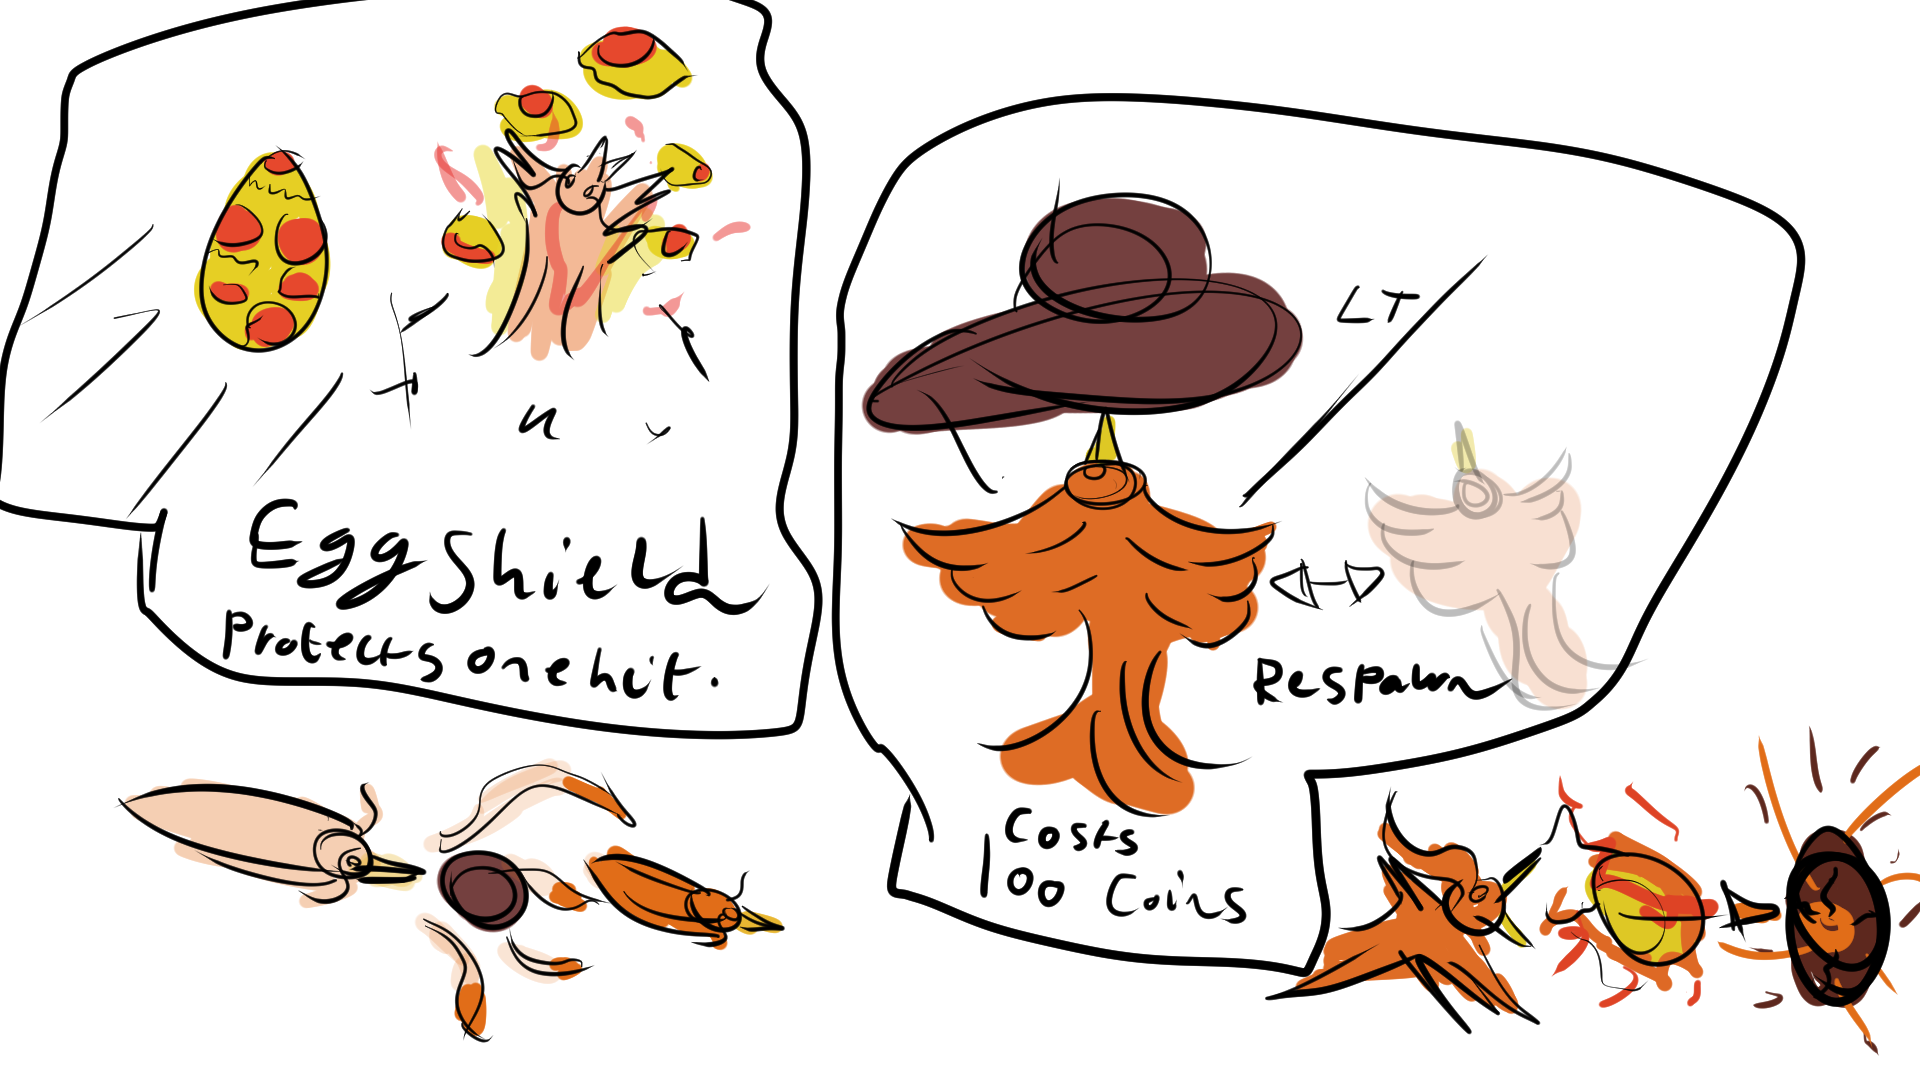 Egg Shield
Protects one hit.
LT
Respawn
Costs
100 Coins